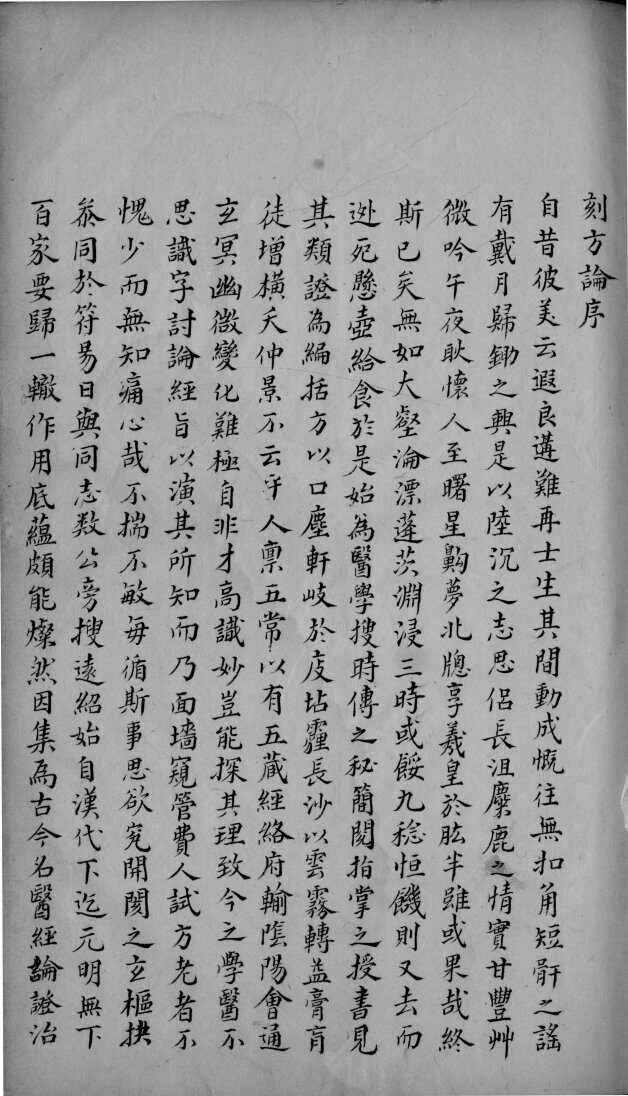 刻方論序
自昔彼美云遐良遘難再士生其間動成慨往無扣角短骭之謠
有戴月歸鋤之興是以陸沉之志思侣長沮麋鹿之情實甘豐艸
微吟午夜耿懷人至曙星齁夢北牕享羲皇於肱半雖或果哉終
斯已矣無如大壑淪漂蓬茨淵浸三時或餒九稔恒饑則又去而
迯死懸壺給食於是始為醫學搜時傳之秘簡閱指掌之授書見
其類證為編括方以口塵軒岐於庋坫霾長沙以雲霧轉益膏肓
徒增橫夭仲景不云乎人禀五常以有五藏經絡府輸陰陽會通
玄冥幽微變化難極自非才高識妙豈能探其理致今之學醫不
思識字討論經旨以演其所知而乃面墻窺管費人試方老者不
愧少而無知痛心哉不揣不敏每循斯事思欲究開闔之玄樞抉
叅同於符易日與同志数公旁搜遠紹始自漢代下迄元明無下
百家要歸一轍作用底蘊頗能燦然因集為古今名醫經論證治